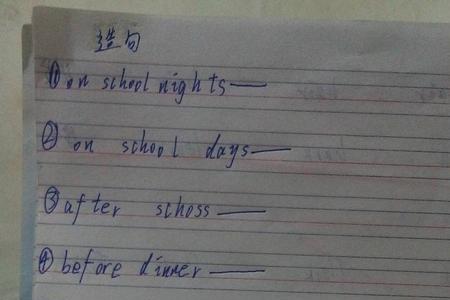 造句
① on school nights——
② on school days——
③ after schoss——
④ before dinner——